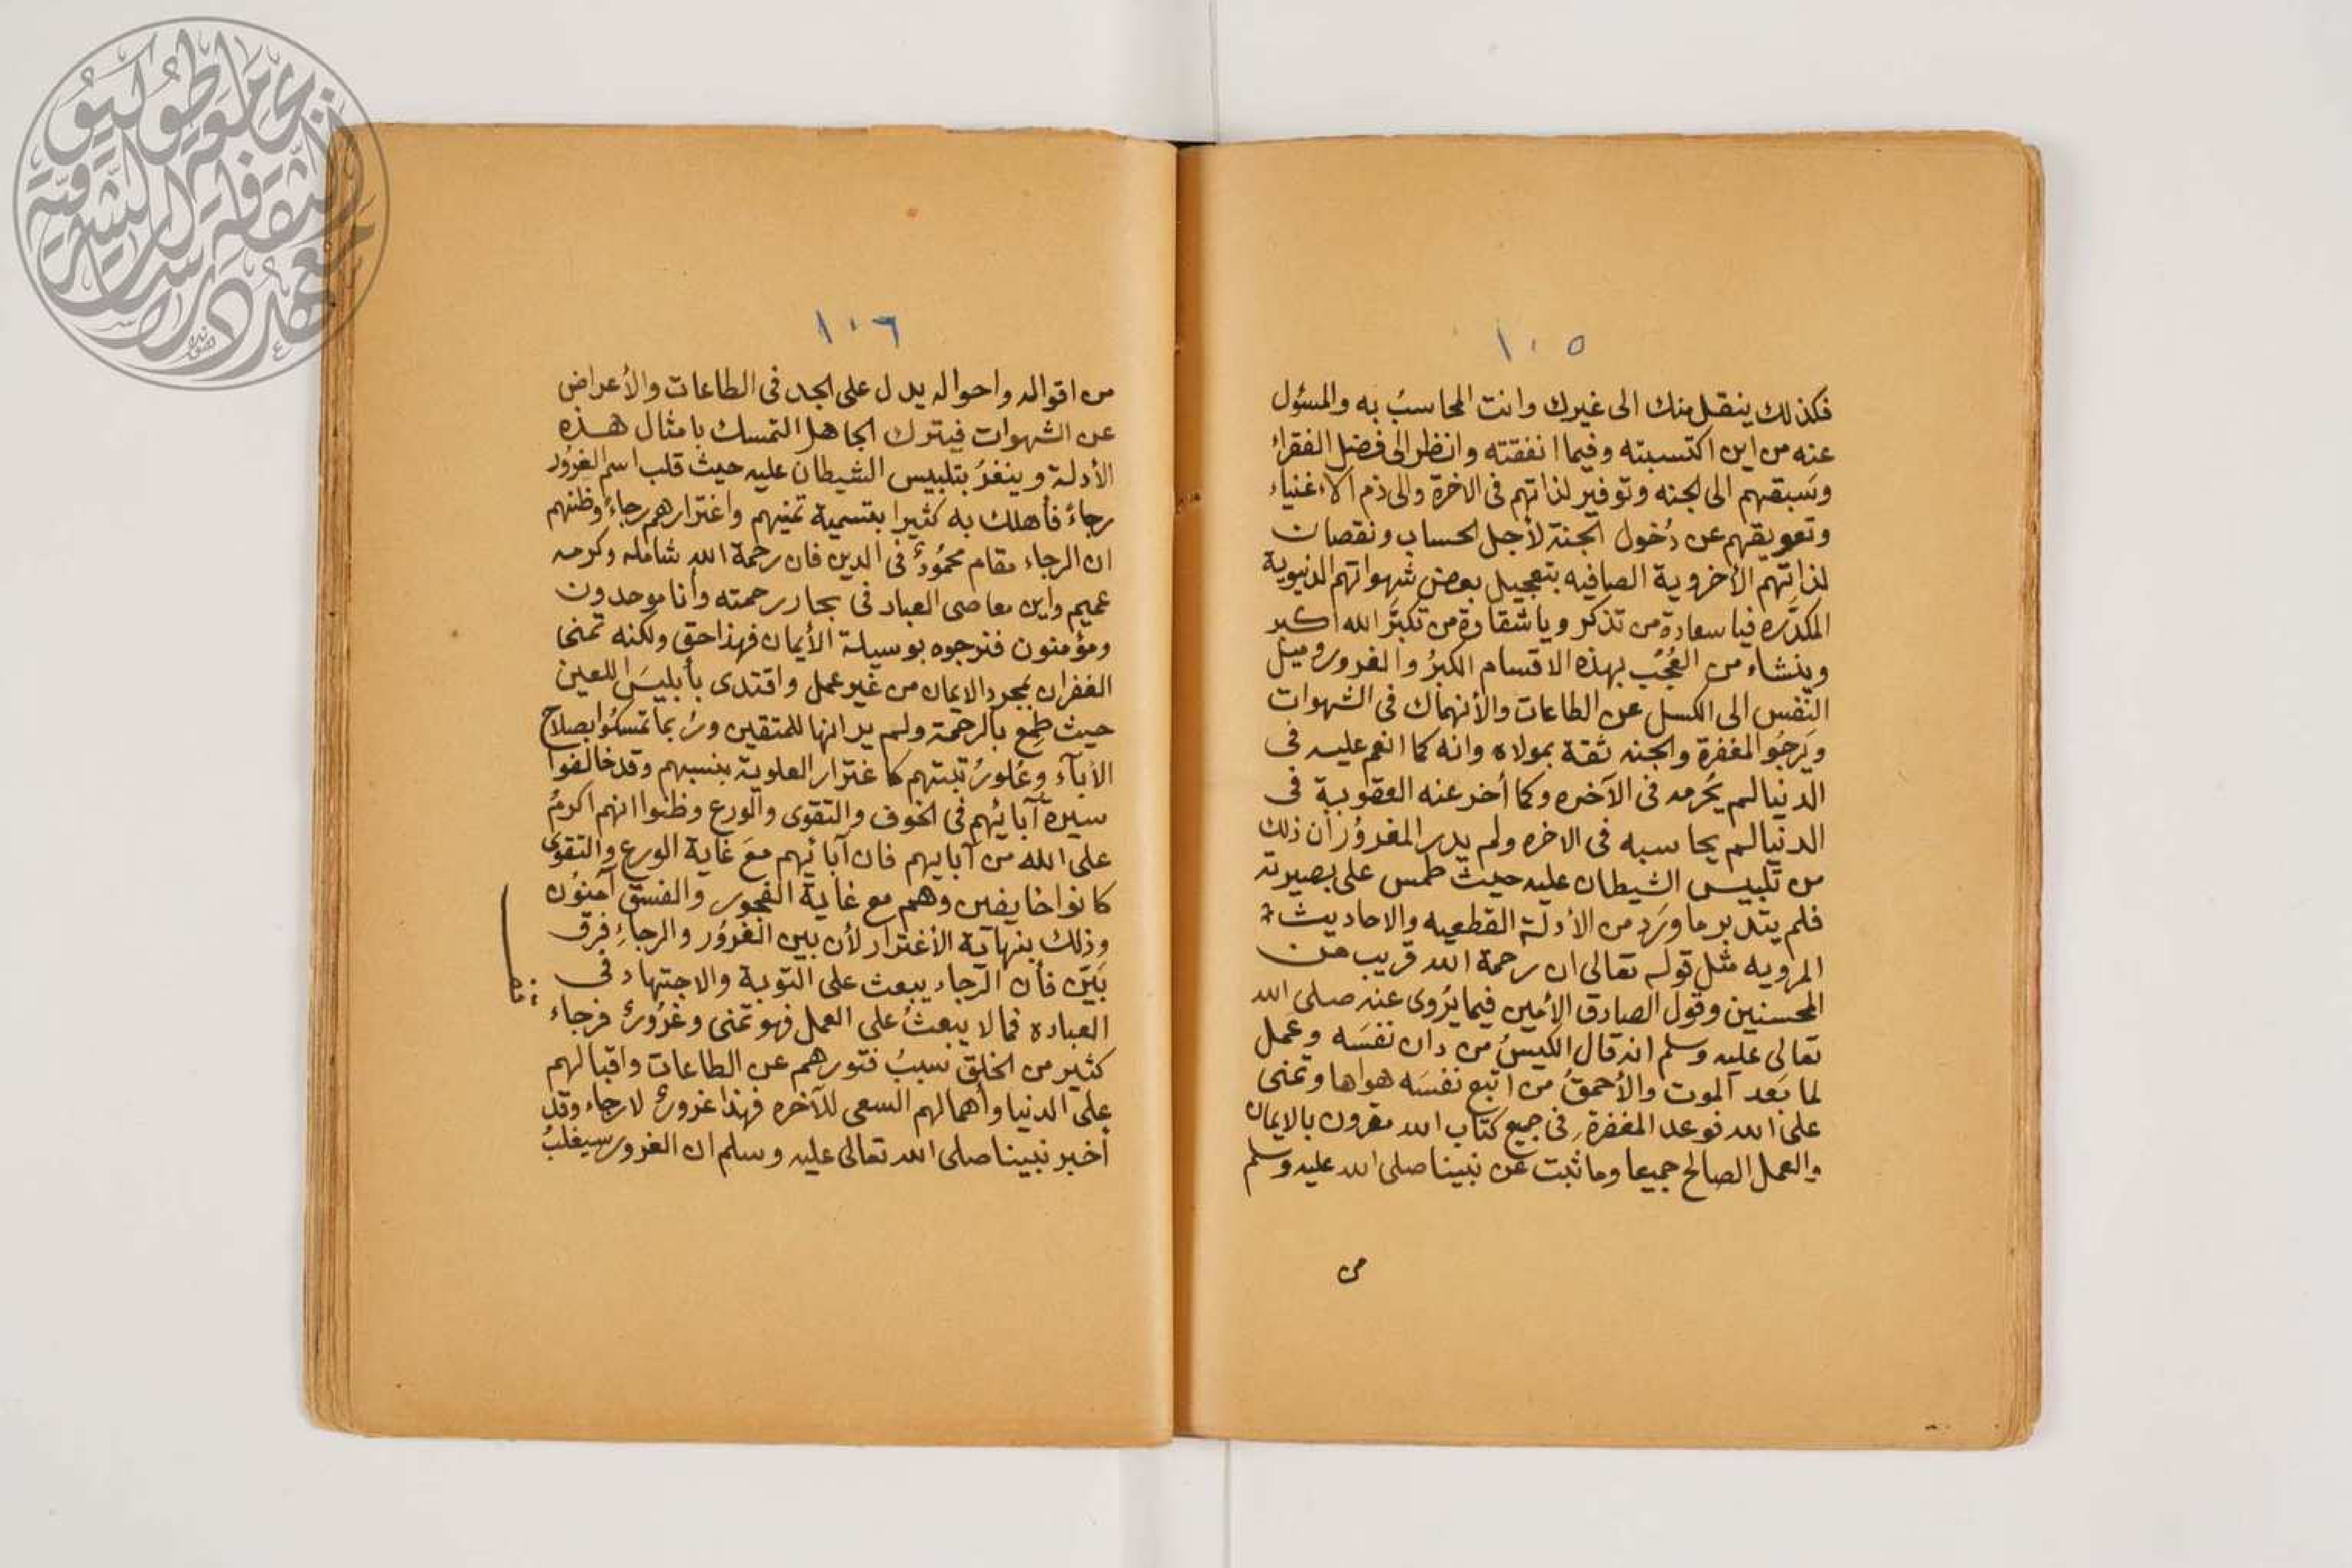 ١٠٥
فكذلك ينقل منك الى غيرك وانت المحاسبُ به والمسئول
عنه من اين اكتسبته وفيما انفقته وانظر الى فضل الفقراء
وسَبقهم الى الجنه وتوفير لذاتهم فى الاخرة والى ذم الاغنياء
وتعويقهم عن دُخول الجنة لأجل الحساب ونقصان
لذاتهم الأخروية الصافيه بتعجيل بعض شهواتهم الدنيوية
المكدَّره فيا سعادة من تذكر وياشقاوة من تكبَّر الله اكبر
وينشاء من العُجْب بهذه الاقسام الكبرُ والغرور وميل
النّفس الى الكسل عن الطاعات والأنهماك فى الشهوات
ويَرجُو المغفرة والجنه ثقة بمولاه وانه كما انعم عليه فى
الدنيا لم يُحرمه فى الآخره وكما أخر عنه العقوبة فى
الدنيا لم يحاسبه فى الاخره ولم يدر المغرُورُ أن ذلك
من تلبيس الشيطان عليه حيث طمس على بصيرته
فلم يتدبر ما ورَد من الأدلة القطعيه والاحاديث
المرويه مثل قوله تعالى ان رحمة الله قريب من
المحسنين وقول الصادق الأمين فيما يُروى عنه صلى الله
تعالى عليه وسلم انه قال الكيسُ من دان نفسَه وعَمل
لما بَعد الموت والأحمقُ من اتبع نفسَه هواها وتمنى
على الله فوعد المغفرة فى جميع كتاب الله مقرون بالايمان
والعمل الصالح جميعا وما ثبت عن نبينا صلى الله عليه وسلم
من
١٠٦
من اقواله واحواله يدل على الجد فى الطاعات والأعراض
عن الشهوات فيترك الجاهل التمسك بامثال هذه
الأدلة وينغرُ بتلبيس الشيطان عليه حيث قلب اسم الغرُور
رجاءً فأهلك به كثيرا بتسمية تمنيهم واغترارهم رجاءً وظنهم
ان الرجاء مقام محمُودٌ فى الدين فان رحمة الله شامله وكرمه
عميم واين معاصى العباد فى بحار رحمته وأنا موحدون
ومؤمنون فنرجوه بوسيلة الأيمان فهذا حق ولكنه تمنى
الغفران بمجرد الايمان من غير عمل واقتدى بأبليسَ اللعين
حيث طمِع بالرحمة ولم يدر انها للمتقين ورُبما تمسكُوا بصلاح
الأبآء وعُلو رُتبتهم كاغترار العلوية بنسبهم وقد خالفوا
سيرة آبائهم فى الخوف والتقوى والورع وظنوا انهم اكرمُ
على الله من آبايهم فان آبائهم معَ غاية الورع والتقوى
كانوا خايفين وهم مع غاية الفجور والفسق آمنُون
وذلك بنهاية الأغترار لأن بين الغرُور والرجاءِ فرق
بَيّن فأن الرجاء يبعث على التوبة والاجتهاد فى
العباده فما لا يبعثُ على العمل فهو تمنى وغرُورٌ فرجاء
كثير من الخلق سببُ فتورهم عن الطاعات واقبالهم
على الدنيا وأهمالهم السعى للآخره فهذا غرورٌ لا رجاء وقد
أخبر نبينا صلى الله تعالى عليه وسلم ان الغرور سيغلبُ